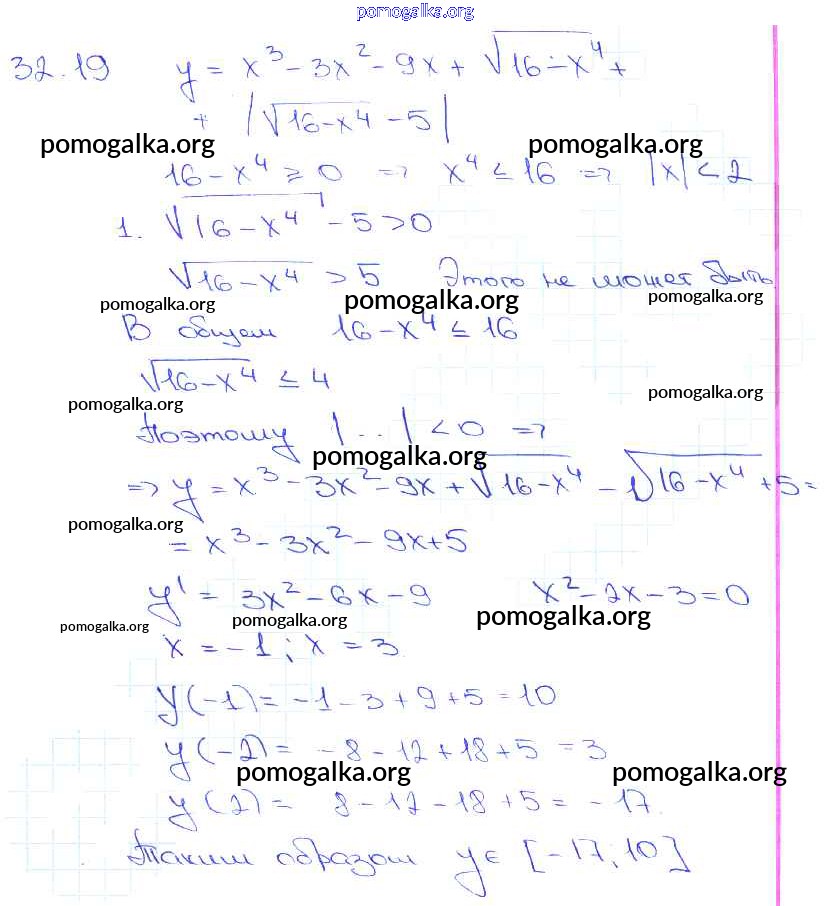 pomogalka.org
32.19 y = x³ - 3x² - 9x + √(16 - x⁴) +
+ |√(16-x⁴) - 5|
pomogalka.org pomogalka.org
16 - x⁴ ≥ 0 => x⁴ ≤ 16 => |x| < 2
1. √(16 - x⁴) - 5 > 0
√(16 - x⁴) > 5 Этого не может быть
pomogalka.org pomogalka.org pomogalka.org
В общем 16 - x⁴ ≤ 16
√(16 - x⁴) ≤ 4
pomogalka.org pomogalka.org
Поэтому |...| < 0 =>
pomogalka.org
=> y = x³ - 3x² - 9x + √(16 - x⁴) - √(16 - x⁴) + 5 =
pomogalka.org
= x³ - 3x² - 9x + 5
y' = 3x² - 6x - 9 x² - 2x - 3 = 0
pomogalka.org pomogalka.org pomogalka.org
x = -1; x = 3
y(-1) = -1 - 3 + 9 + 5 = 10
y(-2) = -8 - 12 + 18 + 5 = 3
pomogalka.org pomogalka.org
y(2) = 8 - 12 - 18 + 5 = -17.
Таким образом y ∈ [-17; 10]